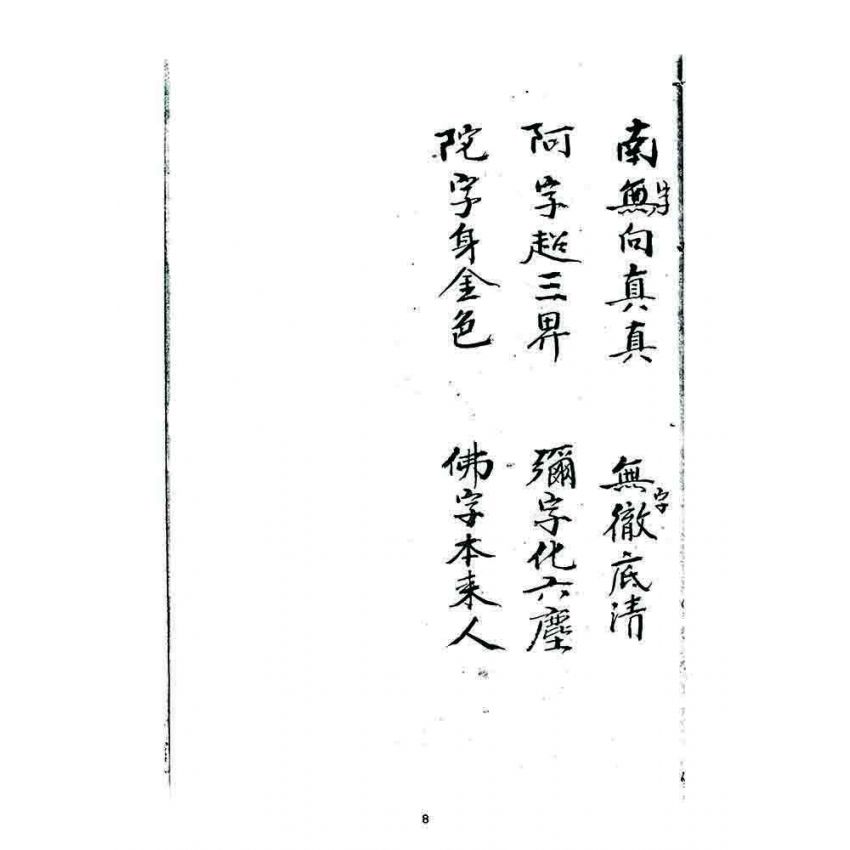 南無字向真真　無字徹底清
阿字超三界　彌字化六塵
陀字身金色　佛字本来人
8